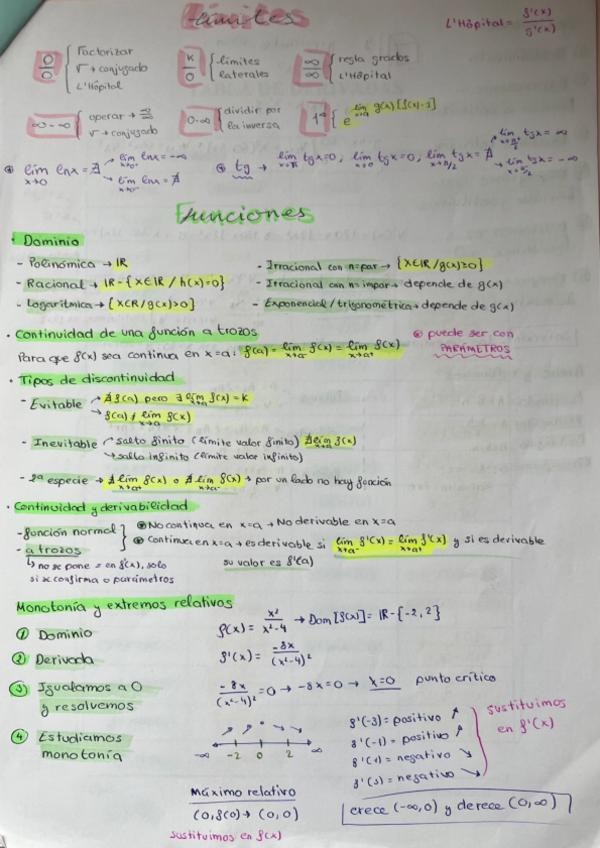 Límites
L'Hôpital = f'(x)/g'(x)
0/0 { Factorizar
√ → conjugado
L'Hôpital
K/0 { límites
laterales
∞/∞ { regla grados
L'Hôpital
∞-∞ { operar → ∞/∞
√ → conjugado
0·∞ { dividir por
la inversa
1^∞ { e^(lim x→a g(x)[f(x)-1])
lim x→0 lnx = ∄ → lim x→0⁺ lnx = -∞
→ lim x→0⁻ lnx = ∄
tg → lim x→π tgx = 0, lim x→0 tgx = 0, lim x→π/2 tgx = ∄ → lim x→π/2⁻ tgx = ∞
→ lim x→π/2⁺ tgx = -∞
Funciones
· Dominio
- Polinómica → IR
- Racional → IR - {x∈IR / h(x)=0}
- Logarítmica → {x∈R / g(x)>0}
- Irracional con n=par → {x∈IR / g(x)≥0}
- Irracional con n=impar → depende de g(x)
- Exponencial / trigonométrica → depende de g(x)
· Continuidad de una función a trozos
Para que f(x) sea continua en x=a: f(a) = lim x→a⁻ f(x) = lim x→a⁺ f(x)
puede ser con
PARÁMETROS
· Tipos de discontinuidad
- Evitable → ∄ f(a) pero ∃ lim x→a f(x) = K
→ f(a) ≠ lim x→a f(x)
- Inevitable → salto finito (límite valor finito) ∄ lim x→a f(x)
→ salto infinito (límite valor infinito)
- 2ª especie → ∄ lim x→a⁺ f(x) o ∄ lim x→a⁻ f(x) → por un lado no hay función
· Continuidad y derivabilidad
- función normal
- a trozos
↳ no se pone = en f'(x), solo
si se confirma o parámetros
No continua en x=a → No derivable en x=a
Continua en x=a → es derivable si lim x→a⁻ f'(x) = lim x→a⁺ f'(x) y si es derivable
su valor es f'(a)
Monotonía y extremos relativos
① Dominio
f(x) = x²/(x²-4) → Dom [f(x)] = IR - {-2, 2}
② Derivada
f'(x) = -8x/(x²-4)²
③ Igualamos a 0
y resolvemos
-8x/(x²-4)² = 0 → -8x = 0 → x=0 punto crítico
④ Estudiamos
monotonía
-∞ -2 0 2 ∞
f'(-3) = positivo ↗
f'(-1) = positivo ↗
f'(1) = negativo ↘
f'(3) = negativo ↘
sustituimos
en f'(x)
Máximo relativo
(0, f(0)) → (0, 0)
sustituimos en f(x)
crece (-∞,0) y decrece (0,∞)